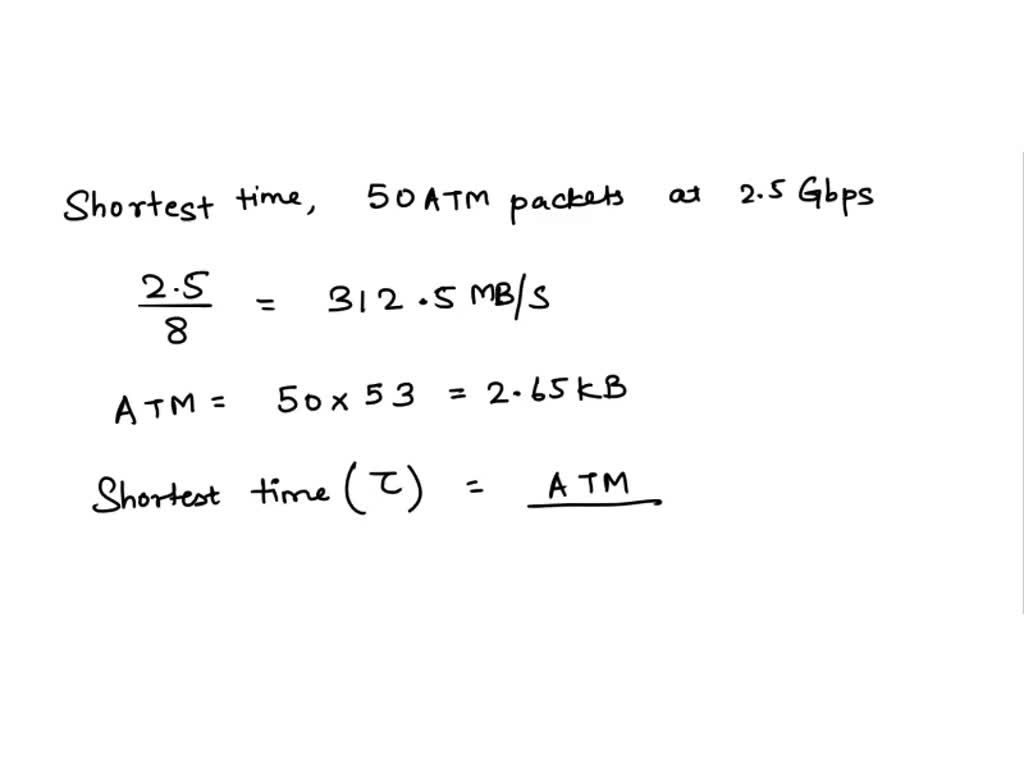 Shortest time, 50 ATM packets at 2.5 Gbps
2.5/8 = 312.5 MB/S
ATM = 50 x 53 = 2.65KB
Shortest time (τ) = ATM